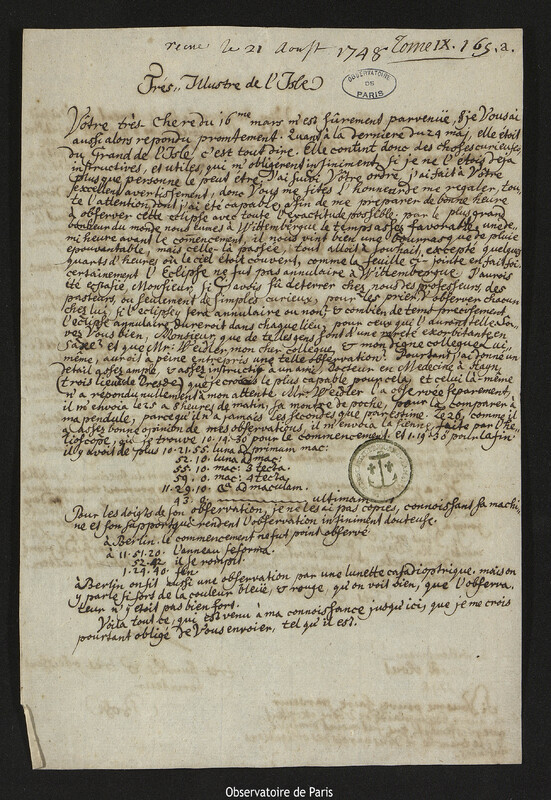 reçue le 21 Aoust 1748 Tome IX. 165. a.
OBSERVATOIRE DE PARIS
Très Illustre de l'Isle
Vôtre très chere du 16me mars m'est sûrement parvenüe, & je Vous ai
aussi alors repondu promtement. Quand à la derniere du 24 maj, elle étoit
du Grand de l'Isle, c'est tout dire. Elle contint donc des choses curieuses,
instructives, et utiles qui m'obligeront infiniment, si je ne l'étois deja
plus que personne le peut être. J'ai suivi Vôtre ordre, j'ai fait à Vôtre
excellent avertissement, donc Vous me fites l'honneur de me regaler, tou-
te l'attention, dont j'ai été capable, afin de me preparer de bonne heure
à observer cette eclipse avec toute l'exactitude possible. par le plus grand
bonheur du monde nous eumes à Wittembergue le temps assés favorable, une de-
mi heure avant le commencement, il nous vint bien une bourrasque de pluie
epouvantable, mais celle-là passée, tout alloit à souhait, excepté quelques
quarts d'heures où le ciel étoit couvert, comme la feuille ci-jointe en fait foi.
certainement l'Eclipse ne fut pas annulaire à Wittembergue. J'aurois
été extasié, Monsieur, si j'avois sû deterrer chez nous des professeurs, des
pasteurs, ou seulement de simples curieux, pour les prier d'observer chacun
chez lui, si l'eclipse y sera annulaire ou non? & combien de tems precisement
l'eclipse annulaire dureroit dans chaque lieu, pour ceux qui l'auront telle. Sa-
vés Vous bien, Monsieur que de telles gens sont d'une rareté exorbitante en
Saxe? et que Mr. Weidler mon cher collegue, & mon digne collegue lui
même, auroit à peine entrepris une telle observation? Pourtant j'ai donné un
detail assés ample, & assés instructif à un ami, Docteur en Medecine à Hayn,
(trois lieües de Dresde) que je crois le plus capable pour cela, et celui là-même
n'a repondu nullement à mon attente. Mr Weidler l'a observée separement,
il m'envoia le 25 a 8 heures de matin, sa montre de poche, pour la comparer à
ma pendule, parce qu'il n'a jamais les secondes que par estime. Le 26, comme il
a assés bonne opinion de mes observations, il m'envoia la sienne, faite par l'he-
lioscope, où je trouve 10.19.30 pour le commencement et 1.19.30 pour la fin
il y avoit de plus 10.21.55. luna ad primum mac:
52.10. luna ad mac:
55.10. mac: 3 tecta.
59.0. mac: 4 tecta.
11.29.10 ad maculam.
43.0. ultimam
Pour les doigts de son observation, je ne les ai pas copiés, connoissant sa machi-
ne et son support qui rendent l'observation infiniment douteuse.
à Berlin. le commencement ne fut point observé
à 11.51.20. l'anneau se forma.
52.42 il se rompit.
1.24.40. fin
à Berlin on fit aussi une observation par une lunette catadioptrique. mais on
y parle si fort de la couleur bleüe, & rouge, qu'on voit bien, que l'observa-
teur n'y étoit pas bien fort.
Voila tout ce, qui est venu à ma connoissance jusqu'ici, que je me crois
pourtant obligé de Vous envoier, tel qu'il est.
Observatoire de Paris